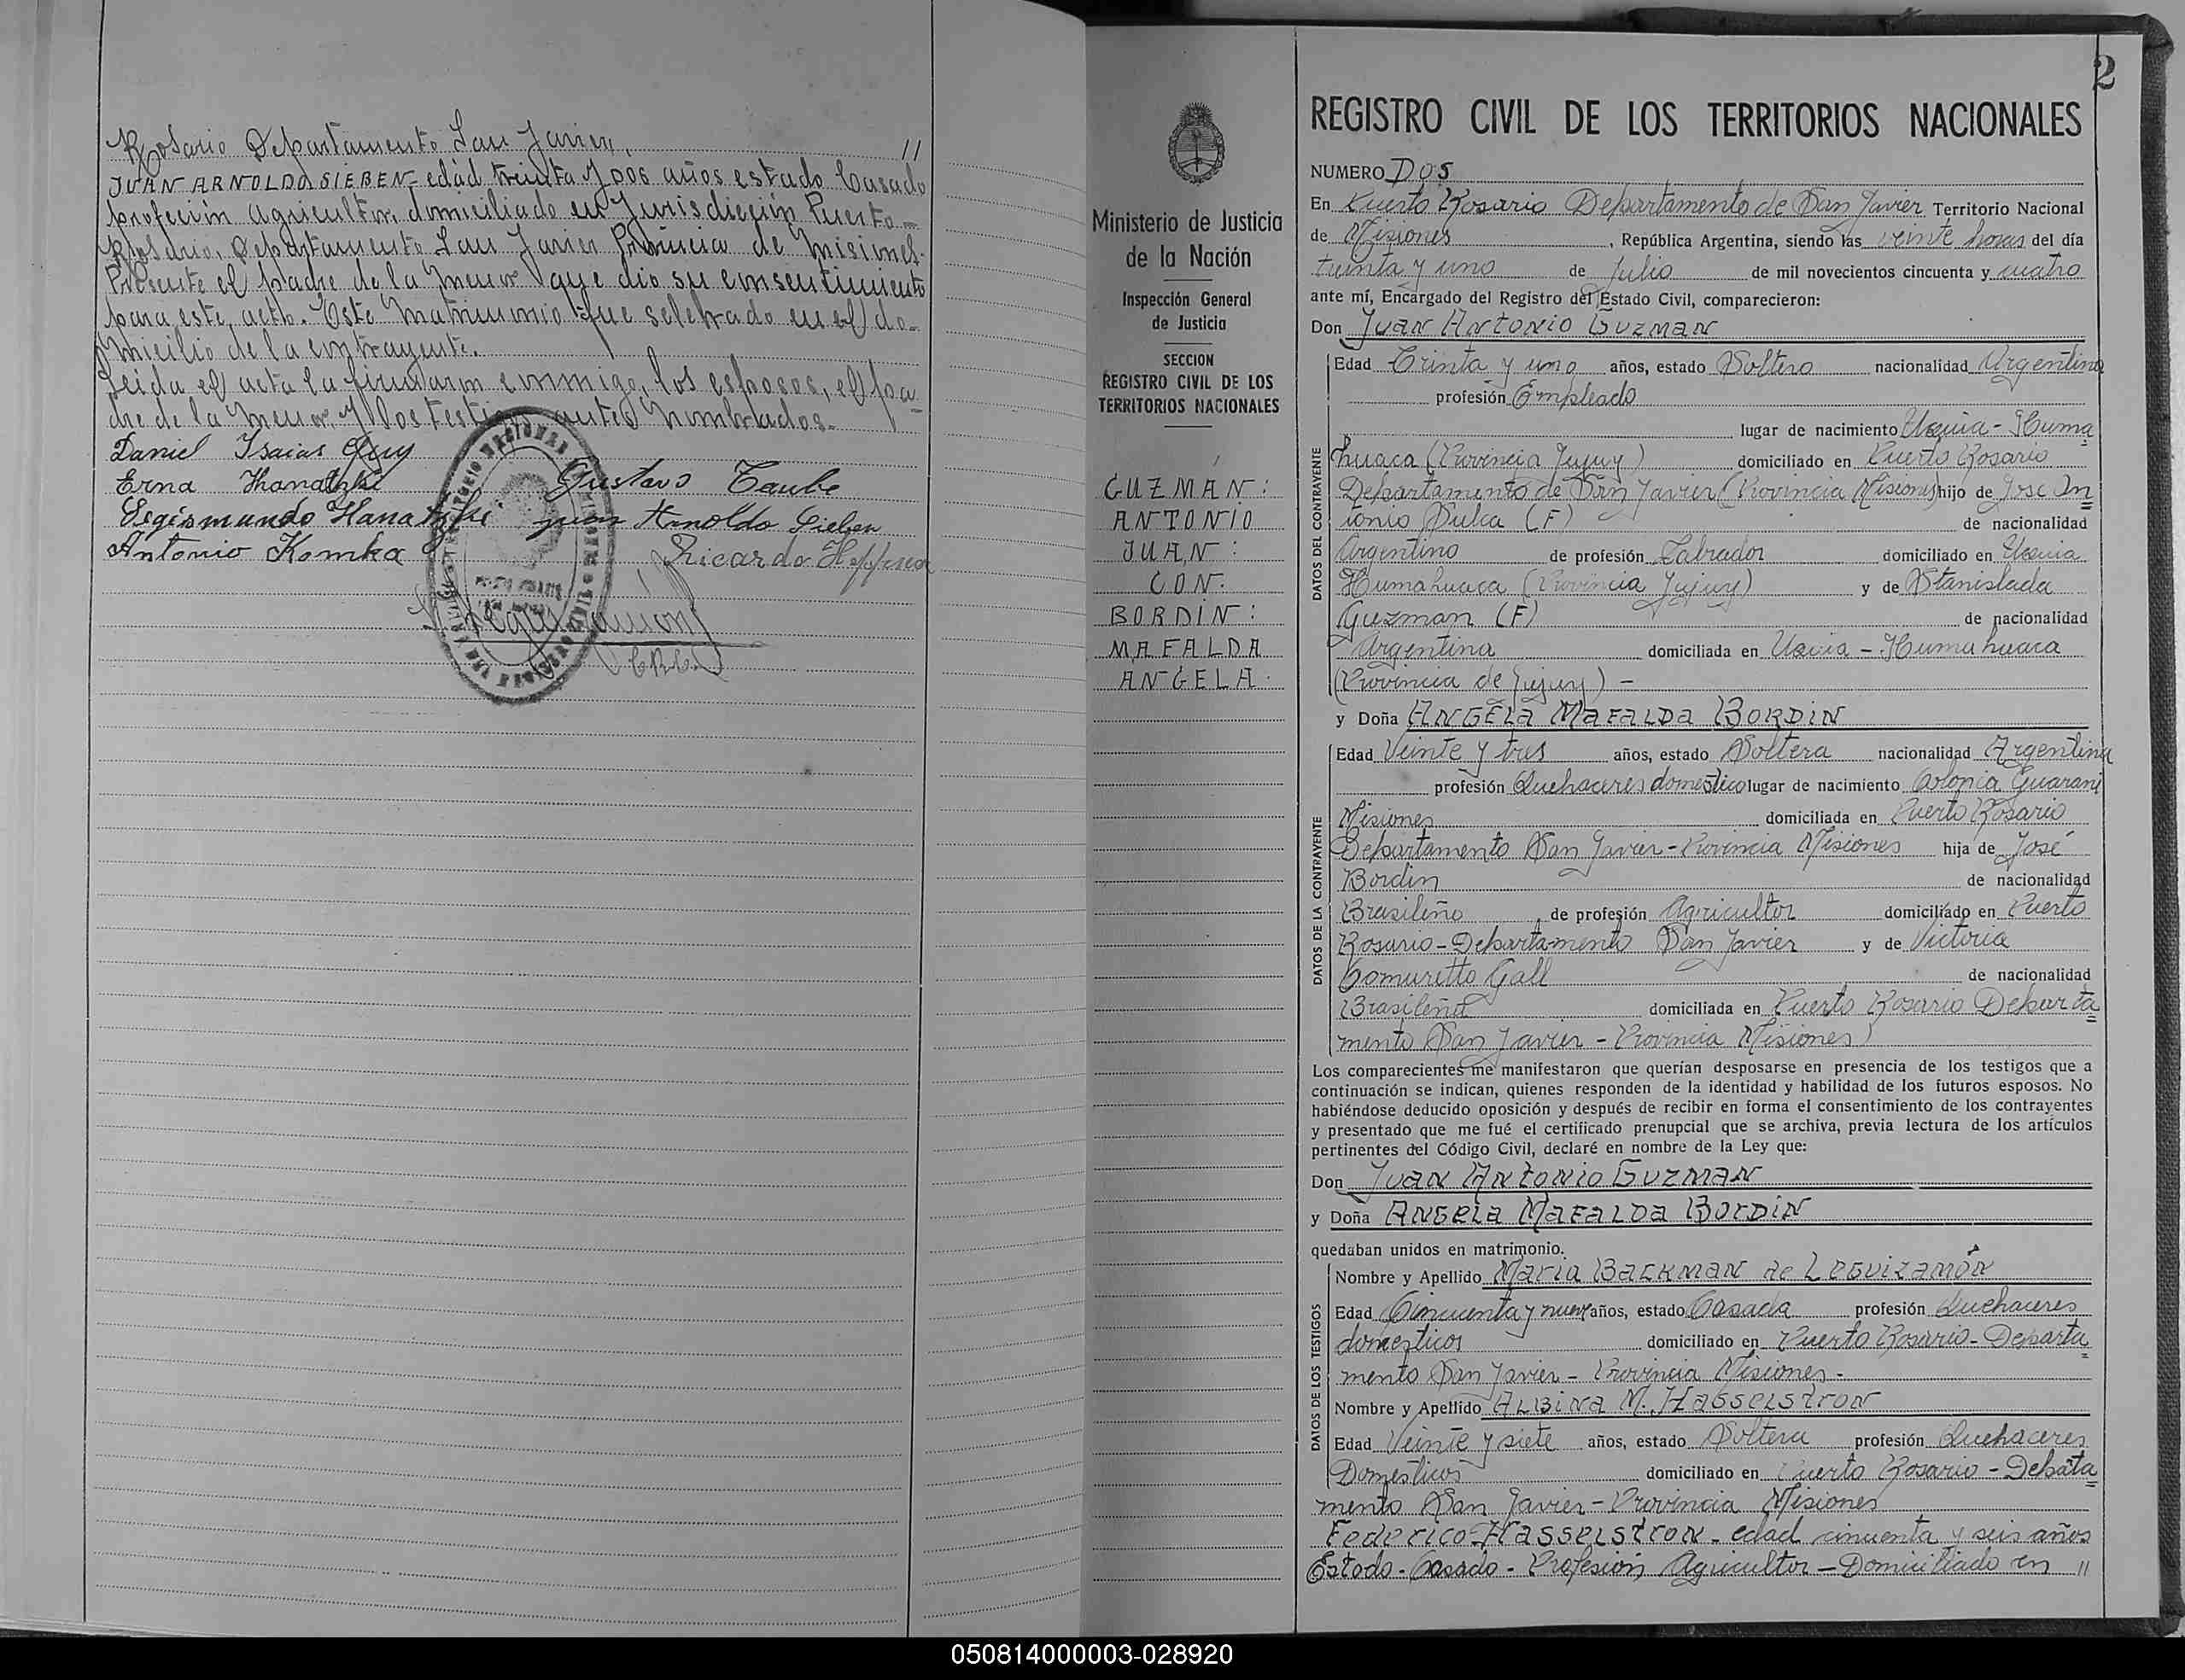 Rosario Departamento San Javier. //
JUAN ARNOLDO SIEBEN - edad treinta y dos años estado Casado
profeción agricultor, domiciliado en Jurisdicción Puerto
Rosario, Departamento San Javier Provincia de Misiones.
Presente el padre de la menor que dió su consentimiento
para este acto. Este matrimonio fue selebrado en el do-
micilio de la contrayente.
Leida el acta la firmaron conmigo, los esposos, el pa-
dre de la menor, y los testigos antes nombrados.-
Daniel Isaias
Erna Gustavo Taube
Juan Arnoldo Sieben
Antonio Komka Ricardo
2
Ministerio de Justicia
de la Nación
Inspección General
de Justicia
SECCION
REGISTRO CIVIL DE LOS
TERRITORIOS NACIONALES
GUZMAN:
ANTONIO
JUAN:
CON:
BORDIN:
MAFALDA
ANGELA.
REGISTRO CIVIL DE LOS TERRITORIOS NACIONALES
NUMERO DOS
En Puerto Rosario Departamento de San Javier Territorio Nacional
de Misiones, República Argentina, siendo las veinte horas del día
treinta y uno de Julio de mil novecientos cincuenta y cuatro
ante mí, Encargado del Registro del Estado Civil, comparecieron:
Don JUAN ANTONIO GUZMAN
DATOS DEL CONTRAYENTE
Edad Trinta y uno años, estado Soltero nacionalidad Argentino
profesión Empleado
lugar de nacimiento Uquia - Huma
huaca (Provincia Jujuy) domiciliado en Puerto Rosario
Departamento de San Javier (Provincia Misiones) hijo de José An
tonio Sulca (F) de nacionalidad
Argentino de profesión Labrador domiciliado en Uquia
Humahuaca (Provincia Jujuy) y de Stanislada
Guzman (F) de nacionalidad
Argentina domiciliada en Uquia - Humahuaca
(Provincia de Jujuy) -
y Doña ANGELA MAFALDA BORDIN
DATOS DE LA CONTRAYENTE
Edad Veinte y tres años, estado Soltera nacionalidad Argentina
profesión Quehaceres domestico lugar de nacimiento Colonia Guarani
Misiones domiciliada en Puerto Rosario
Departamento San Javier - Provincia Misiones hija de José
Bordin de nacionalidad
Brasileño de profesión Agricultor domiciliado en Puerto
Rosario - Departamento San Javier y de Victoria
Comuretto Gall de nacionalidad
Brasileña domiciliada en Puerto Rosario Departa
mento San Javier - Provincia Misiones)
Los comparecientes me manifestaron que querían desposarse en presencia de los testigos que a
continuación se indican, quienes responden de la identidad y habilidad de los futuros esposos. No
habiéndose deducido oposición y después de recibir en forma el consentimiento de los contrayentes
y presentado que me fué el certificado prenupcial que se archiva, previa lectura de los artículos
pertinentes del Código Civil, declaré en nombre de la Ley que:
Don JUAN ANTONIO GUZMAN
y Doña ANGELA MAFALDA BORDIN
quedaban unidos en matrimonio.
DATOS DE LOS TESTIGOS
Nombre y Apellido MARIA BACKMAN de LEGUIZAMÓN
Edad Cincuenta y nueve años, estado Casada profesión Quehaceres
domesticos domiciliado en Puerto Rosario - Departa
mento San Javier - Provincia Misiones -
Nombre y Apellido ALBINA M. HASSELSTRON
Edad Veinte y siete años, estado Soltera profesión Quehaceres
Domesticos domiciliado en Puerto Rosario - Depata
mento San Javier - Provincia Misiones
Federico HASSELSTRON - edad cinuenta y seis años
Estado - Casado - Profesión Agricultor - Domiciliado en //
050814000003-028920